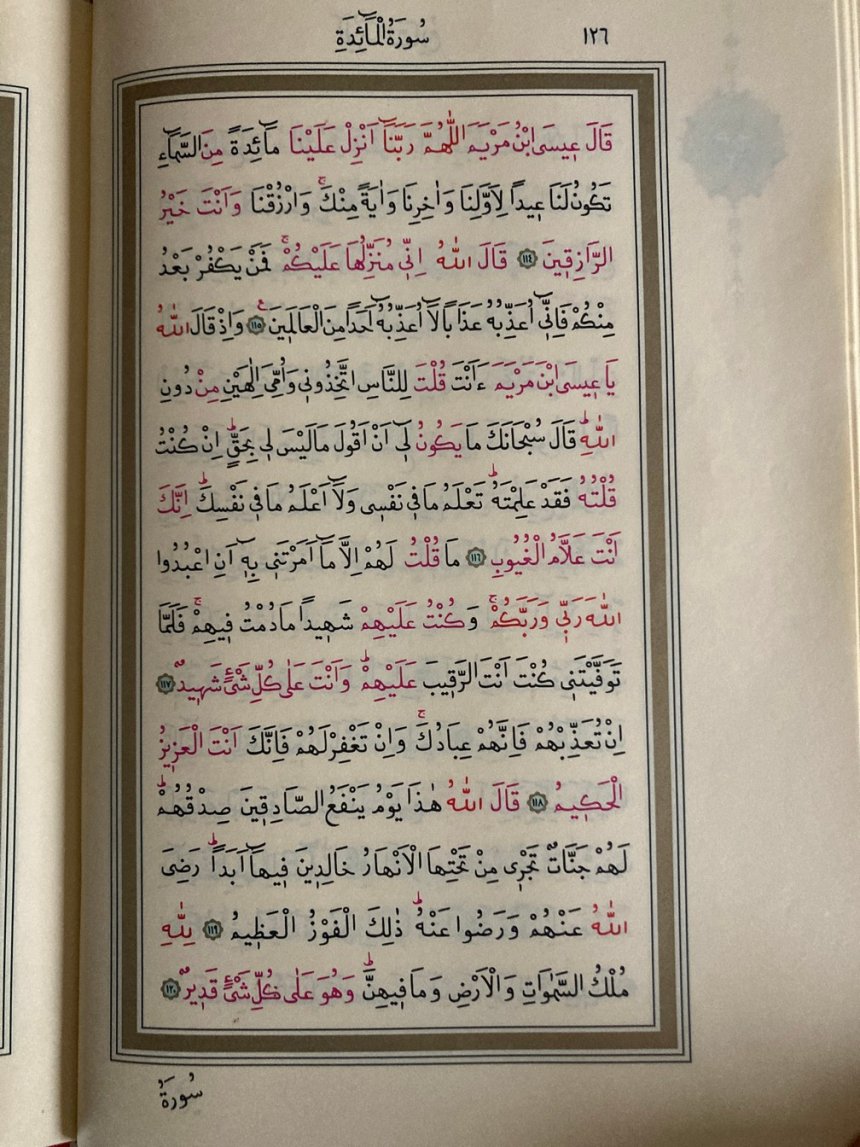 سُورَةُ الْمَٓائِدَةِ ١٢٦
قَالَ عٖيسَى ابْنُ مَرْيَمَ اللّٰهُمَّ رَبَّنَٓا اَنْزِلْ عَلَيْنَا مَٓائِدَةً مِنَ السَّمَٓاءِ
تَكُونُ لَنَا عٖيداً لِاَوَّلِنَا وَاٰخِرِنَا وَاٰيَةً مِنْكَۚ وَارْزُقْنَا وَاَنْتَ خَيْرُ
الرَّازِقٖينَ ﴿١١٤﴾ قَالَ اللّٰهُ اِنّٖي مُنَزِّلُهَا عَلَيْكُمْۚ فَمَنْ يَكْفُرْ بَعْدُ
مِنْكُمْ فَاِنّٖٓي اُعَذِّبُهُ عَذَاباً لَٓا اُعَذِّبُهُٓ اَحَداً مِنَ الْعَالَمٖينَ ﴿١١٥﴾ وَاِذْ قَالَ اللّٰهُ
يَا عٖيسَى ابْنَ مَرْيَمَ ءَاَنْتَ قُلْتَ لِلنَّاسِ اتَّخِذُونٖي وَاُمِّيَ اِلٰهَيْنِ مِنْ دُونِ
اللّٰهِؕ قَالَ سُبْحَانَكَ مَا يَكُونُ لٖٓي اَنْ اَقُولَ مَا لَيْسَ لٖي بِحَقٍّؕ اِنْ كُنْتُ
قُلْتُهُ فَقَدْ عَلِمْتَهُؕ تَعْلَمُ مَا فٖي نَفْسٖي وَلَٓا اَعْلَمُ مَا فٖي نَفْسِكَؕ اِنَّكَ
اَنْتَ عَلَّامُ الْغُيُوبِ ﴿١١٦﴾ مَا قُلْتُ لَهُمْ اِلَّا مَٓا اَمَرْتَنٖي بِهٖٓ اَنِ اعْبُدُوا
اللّٰهَ رَبّٖي وَرَبَّكُمْۚ وَكُنْتُ عَلَيْهِمْ شَهٖيداً مَا دُمْتُ فٖيهِمْۚ فَلَمَّا
تَوَفَّيْتَنٖي كُنْتَ اَنْتَ الرَّقٖيبَ عَلَيْهِمْؕ وَاَنْتَ عَلٰى كُلِّ شَيْءٍ شَهٖيدٌ ﴿١١٧﴾
اِنْ تُعَذِّبْهُمْ فَاِنَّهُمْ عِبَادُكَۚ وَاِنْ تَغْفِرْ لَهُمْ فَاِنَّكَ اَنْتَ الْعَزٖيزُ
الْحَكٖيمُ ﴿١١٨﴾ قَالَ اللّٰهُ هٰذَا يَوْمُ يَنْفَعُ الصَّادِقٖينَ صِدْقُهُمْؕ
لَهُمْ جَنَّاتٌ تَجْرٖي مِنْ تَحْتِهَا الْاَنْهَارُ خَالِدٖينَ فٖيهَٓا اَبَداًؕ رَضِيَ
اللّٰهُ عَنْهُمْ وَرَضُوا عَنْهُؕ ذٰلِكَ الْفَوْزُ الْعَظٖيمُ ﴿١١٩﴾ لِلّٰهِ
مُلْكُ السَّمٰوَاتِ وَالْاَرْضِ وَمَا فٖيهِنَّؕ وَهُوَ عَلٰى كُلِّ شَيْءٍ قَدٖيرٌ ﴿١٢٠﴾
سُورَةُ